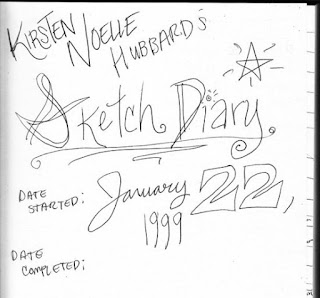 KIRSTEN
NOELLE
HUBBARD'S
Sketch Diary.
DATE
STARTED: January 22,
1999
DATE
COMPLETED: